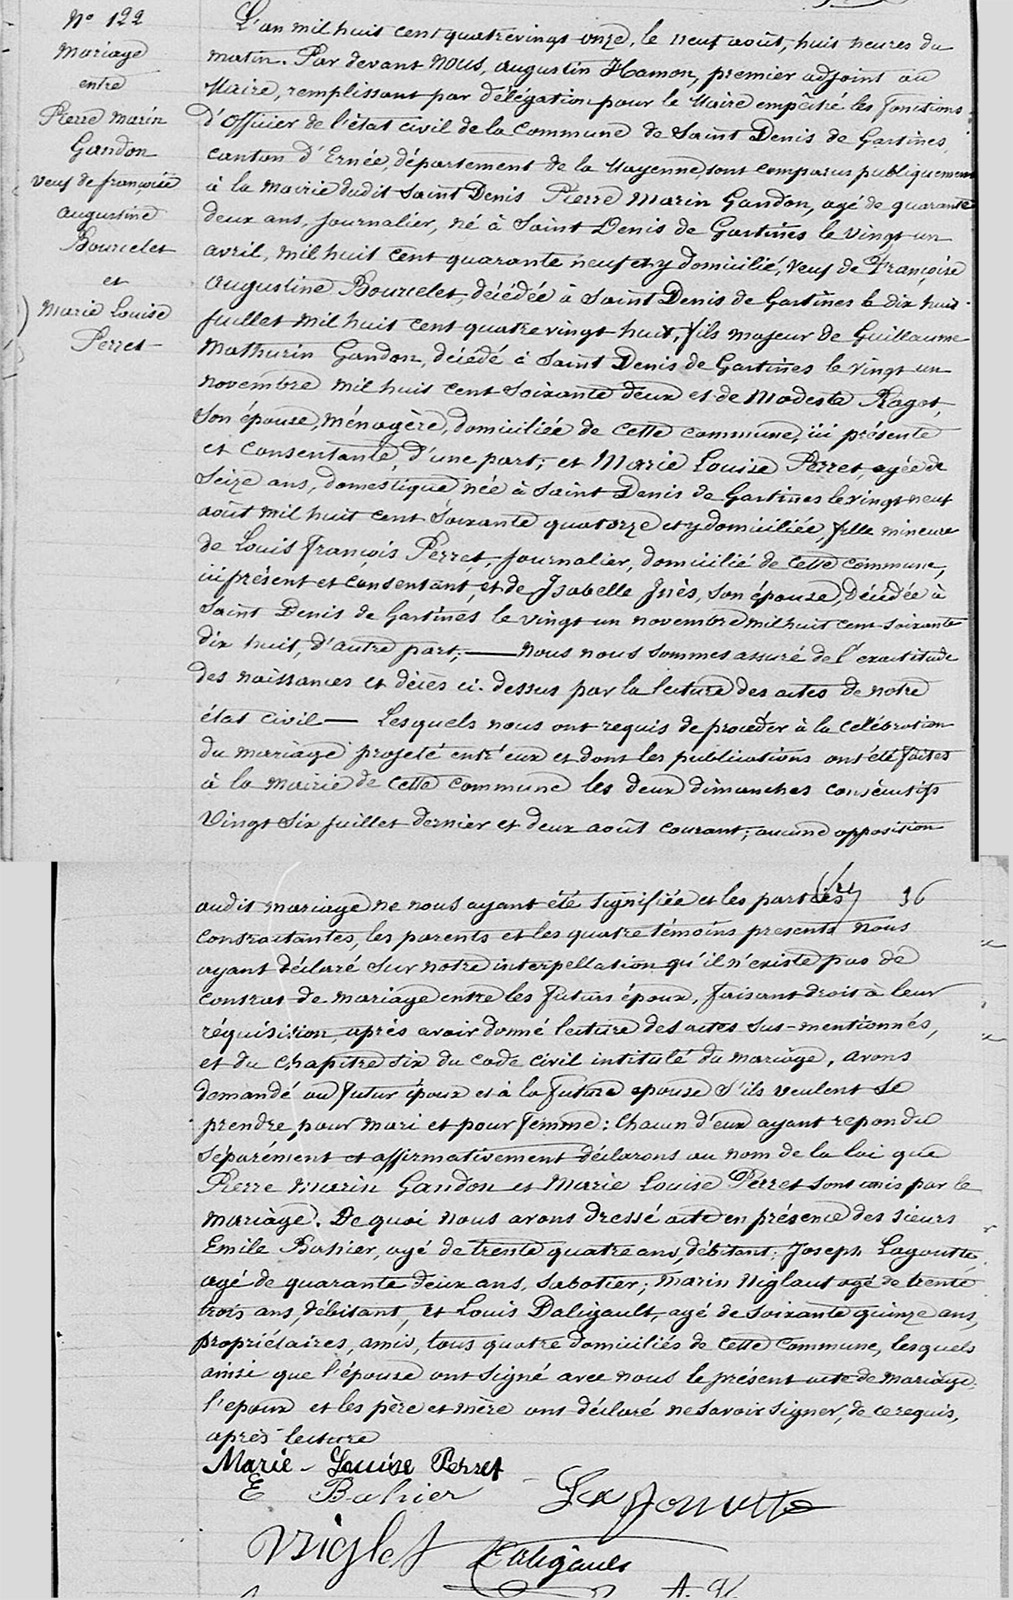 N° 122
Mariage
entre
Pierre Marin
Gandon
veuf de françoise
Augustine
Bourcelet
et
Marie Louise
Perret
L'an mil huit cent quatre vingt onze, le neuf août, huit heures du
matin. Par devant nous, Augustin Hamon, premier adjoint au
Maire, remplissant par délégation pour le Maire empêché les fonctions
d'Officier de l'état civil de la Commune de Saint Denis de Gastines,
canton d'Ernée, département de la Mayenne, sont comparus publiquement
à la Mairie dudit Saint Denis Pierre Marin Gandon, agé de quarante
deux ans, journalier, né à Saint Denis de Gastines le vingt un
avril, mil huit cent quarante neuf et y domicilié, veuf de Françoise
Augustine Bourcelet, décédée à Saint Denis de Gastines le dix huit
juillet mil huit cent quatre vingt huit, fils majeur de Guillaume
Mathurin Gandon, décédé à Saint Denis de Gastines le vingt un
novembre mil huit cent soixante deux et de Modeste Ragot,
son épouse, ménagère, domiciliée de cette commune, ici présente
et consentante, d'une part; et Marie Louise Perret, agée de
seize ans, domestique, née à Saint Denis de Gastines le vingt neuf
août mil huit cent soixante quatorze et y domiciliée, fille mineure
de Louis François Perret, journalier, domicilié de cette commune,
ici présent et consentant, et de Isabelle Inès, son épouse, décédée à
Saint Denis de Gastines le vingt un novembre mil huit cent soixante
dix huit, d'autre part; — Nous nous sommes assuré de l'exactitude
des naissances et décès ci-dessus par la lecture des actes de notre
état civil — Lesquels nous ont requis de procéder à la célébration
du mariage projeté entr'eux et dont les publications ont été faites
à la Mairie de cette commune les deux dimanches consécutifs
vingt six juillet dernier et deux août courant; aucune opposition
36
audit mariage ne nous ayant été signifiée et les parties
contractantes, les parents et les quatre témoins présents nous
ayant déclaré sur notre interpellation qu'il n'existe pas de
contrat de mariage entre les futurs époux, faisant droit à leur
réquisition, après avoir donné lecture des actes sus-mentionnés,
et du chapitre six du code civil intitulé du mariage, avons
demandé au futur époux et à la future épouse s'ils veulent se
prendre pour mari et pour femme: chacun d'eux ayant repondu
séparément et affirmativement déclarons au nom de la loi que
Pierre Marin Gandon et Marie Louise Perret sont unis par le
mariage. De quoi nous avons dressé acte en présence des sieurs
Emile Bahier, agé de trente quatre ans, débitant; Joseph Lagoutte,
agé de quarante deux ans, sabotier; Marin Viglaut agé de trente
trois ans, débitant, et Louis Daligault, agé de soixante quinze ans,
propriétaires, amis, tous quatre domiciliés de cette commune, lesquels
ainsi que l'épouse ont signé avec nous le présent acte de mariage;
l'époux et les père et mère ont déclaré ne savoir signer, de ce requis,
après lecture
Marie-Louise Perret
E Bahier
Viglet
Daligault